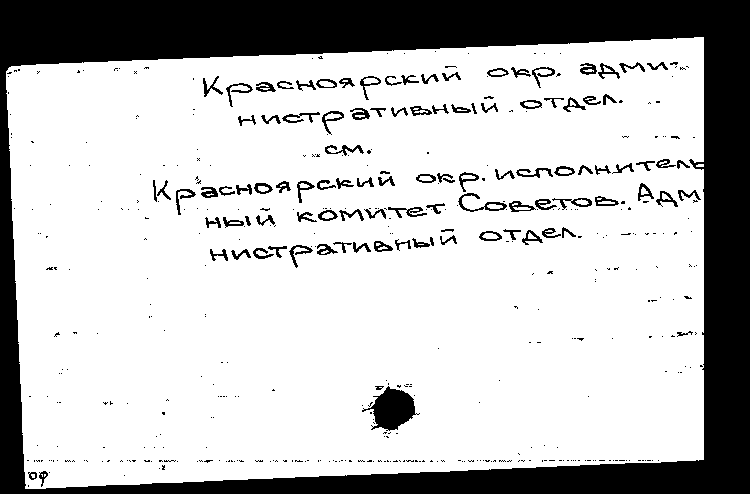 Красноярский окр. адми-
нистративный отдел.
см.
Красноярский окр. исполнитель
ный комитет Советов. Адм
нистративный отдел.
оф